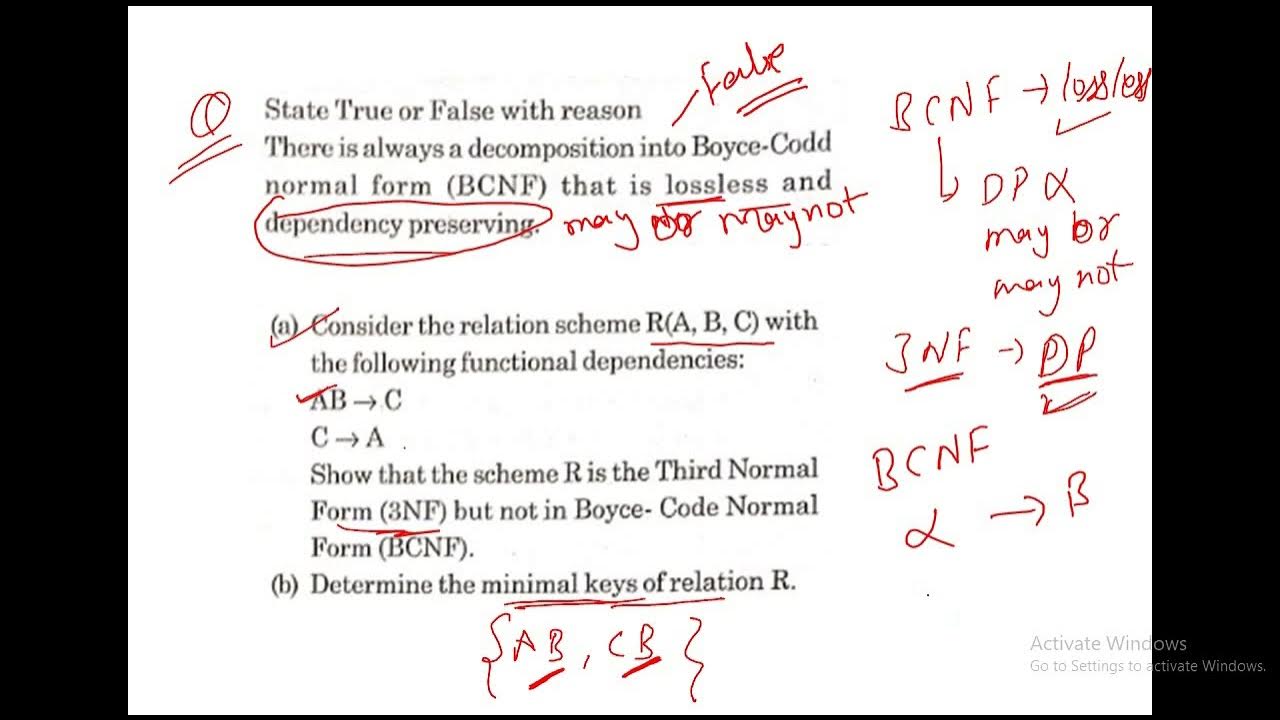 Q
State True or False with reason
False
There is always a decomposition into Boyce-Codd
normal form (BCNF) that is lossless and
dependency preserving.
may or may not
(a) Consider the relation scheme R(A, B, C) with
the following functional dependencies:
AB → C
C → A
Show that the scheme R is the Third Normal
Form (3NF) but not in Boyce- Code Normal
Form (BCNF).
(b) Determine the minimal keys of relation R.
{AB, CB}
BCNF → lossless
DP
may or
may not
3NF → DP
BCNF
α → β
Activate Windows
Go to Settings to activate Windows.